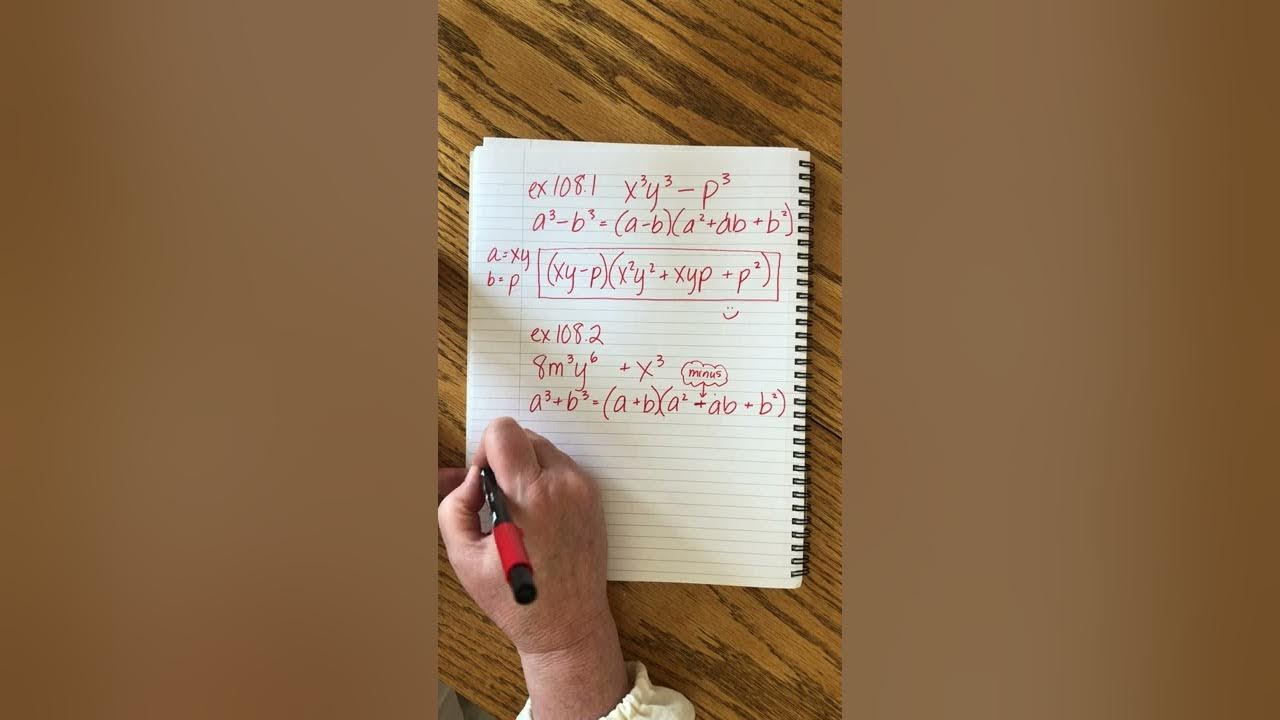 ex 108.1 x³y³ - p³
a³-b³ = (a-b)(a²+ab+b²)
a=xy
b=p
(xy-p)(x²y² + xyp + p²)
ex 108.2
8m³y⁶ + x³
minus
a³+b³ = (a+b)(a² + ab + b²)